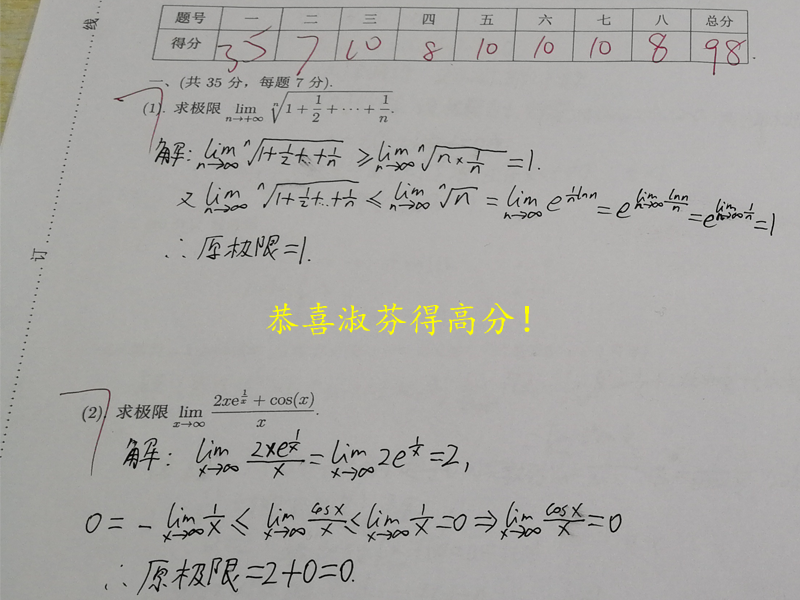 线
题号 一 二 三 四 五 六 七 八 总分
得分 35 7 10 8 10 10 10 8 98
一、(共 35 分，每题 7 分).
7
(1). 求极限 lim_{n→+∞} \sqrt[n]{1+\frac{1}{2}+⋯+\frac{1}{n}}.
解: lim_{n→∞} \sqrt[n]{1+\frac{1}{2}+…+\frac{1}{n}} ≥ lim_{n→∞} \sqrt[n]{n×\frac{1}{n}} = 1.
又 lim_{n→∞} \sqrt[n]{1+\frac{1}{2}+…+\frac{1}{n}} ≤ lim_{n→∞} \sqrt[n]{n} = lim_{n→∞} e^{\frac{1}{n}lnn} = e^{lim_{n→∞} \frac{lnn}{n}} = e^{lim_{n→∞} \frac{1}{n}} = 1
订
∴ 原极限=1.
恭喜淑芬得高分!
7
(2). 求极限 lim_{x→∞} \frac{2xe^{\frac{1}{x}}+cos(x)}{x}.
解: lim_{x→∞} \frac{2xe^{\frac{1}{x}}}{x} = lim_{x→∞} 2e^{\frac{1}{x}} = 2,
0 = - lim_{x→∞} \frac{1}{x} ≤ lim_{x→∞} \frac{cosx}{x} ≤ lim_{x→∞} \frac{1}{x} = 0 ⇒ lim_{x→∞} \frac{cosx}{x} = 0
∴ 原极限=2+0=0.